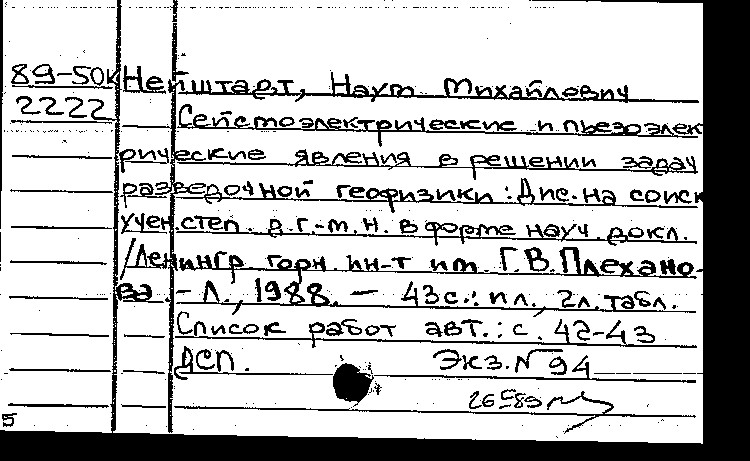 89-50к Нейштадт, Наум Михайлович
2222 Сейсмоэлектрические и пьезоэлект
рические явления в решении задач
разведочной геофизики : Дис. на соиск
учен. степ. д. г.-м. н. в форме науч. докл.
/Ленингр. горн. ин-т им. Г.В. Плехано-
ва. - Л., 1988. - 43 с.: ил., 2л. табл.
Список работ авт.: с. 42-43
ДСП. Экз. N 94
5